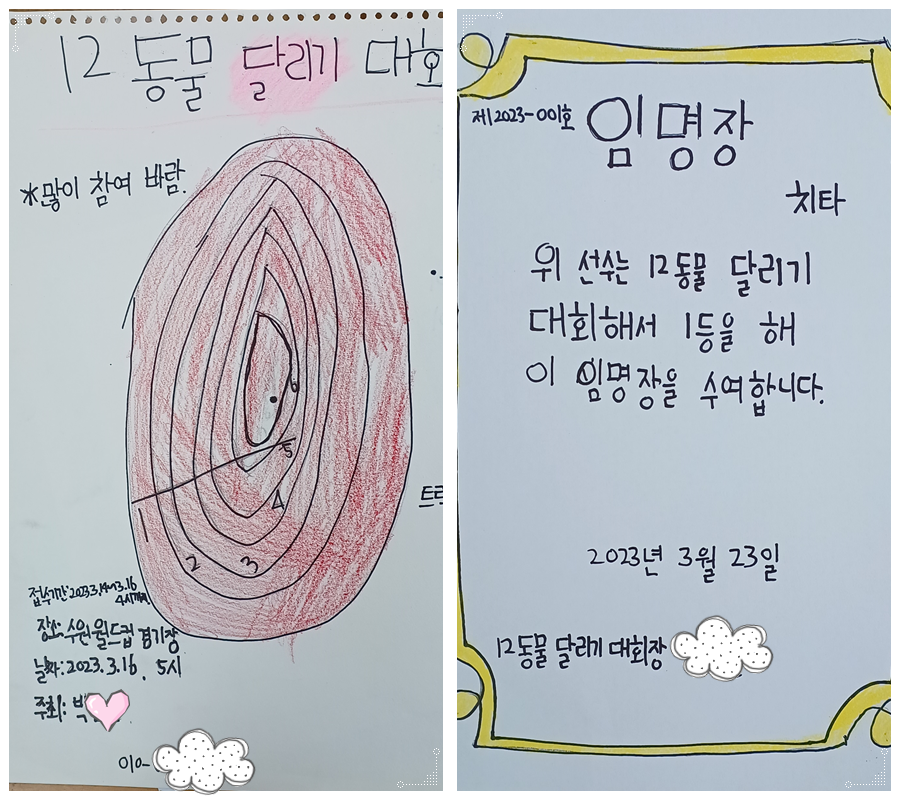 12 동물 달리기 대회
*많이 참여 바람.
1
2
3
4
5
6
트랙
접수기간:2023.3.14~3.16
4시까지
장소:수원월드컵 경기장
날짜:2023.3.16. 5시
주최: 박
제2023-001호
임명장
치타
위 선수는 12동물 달리기
대회해서 1등을 해
이 임명장을 수여합니다.
2023년 3월 23일
12동물 달리기 대회장